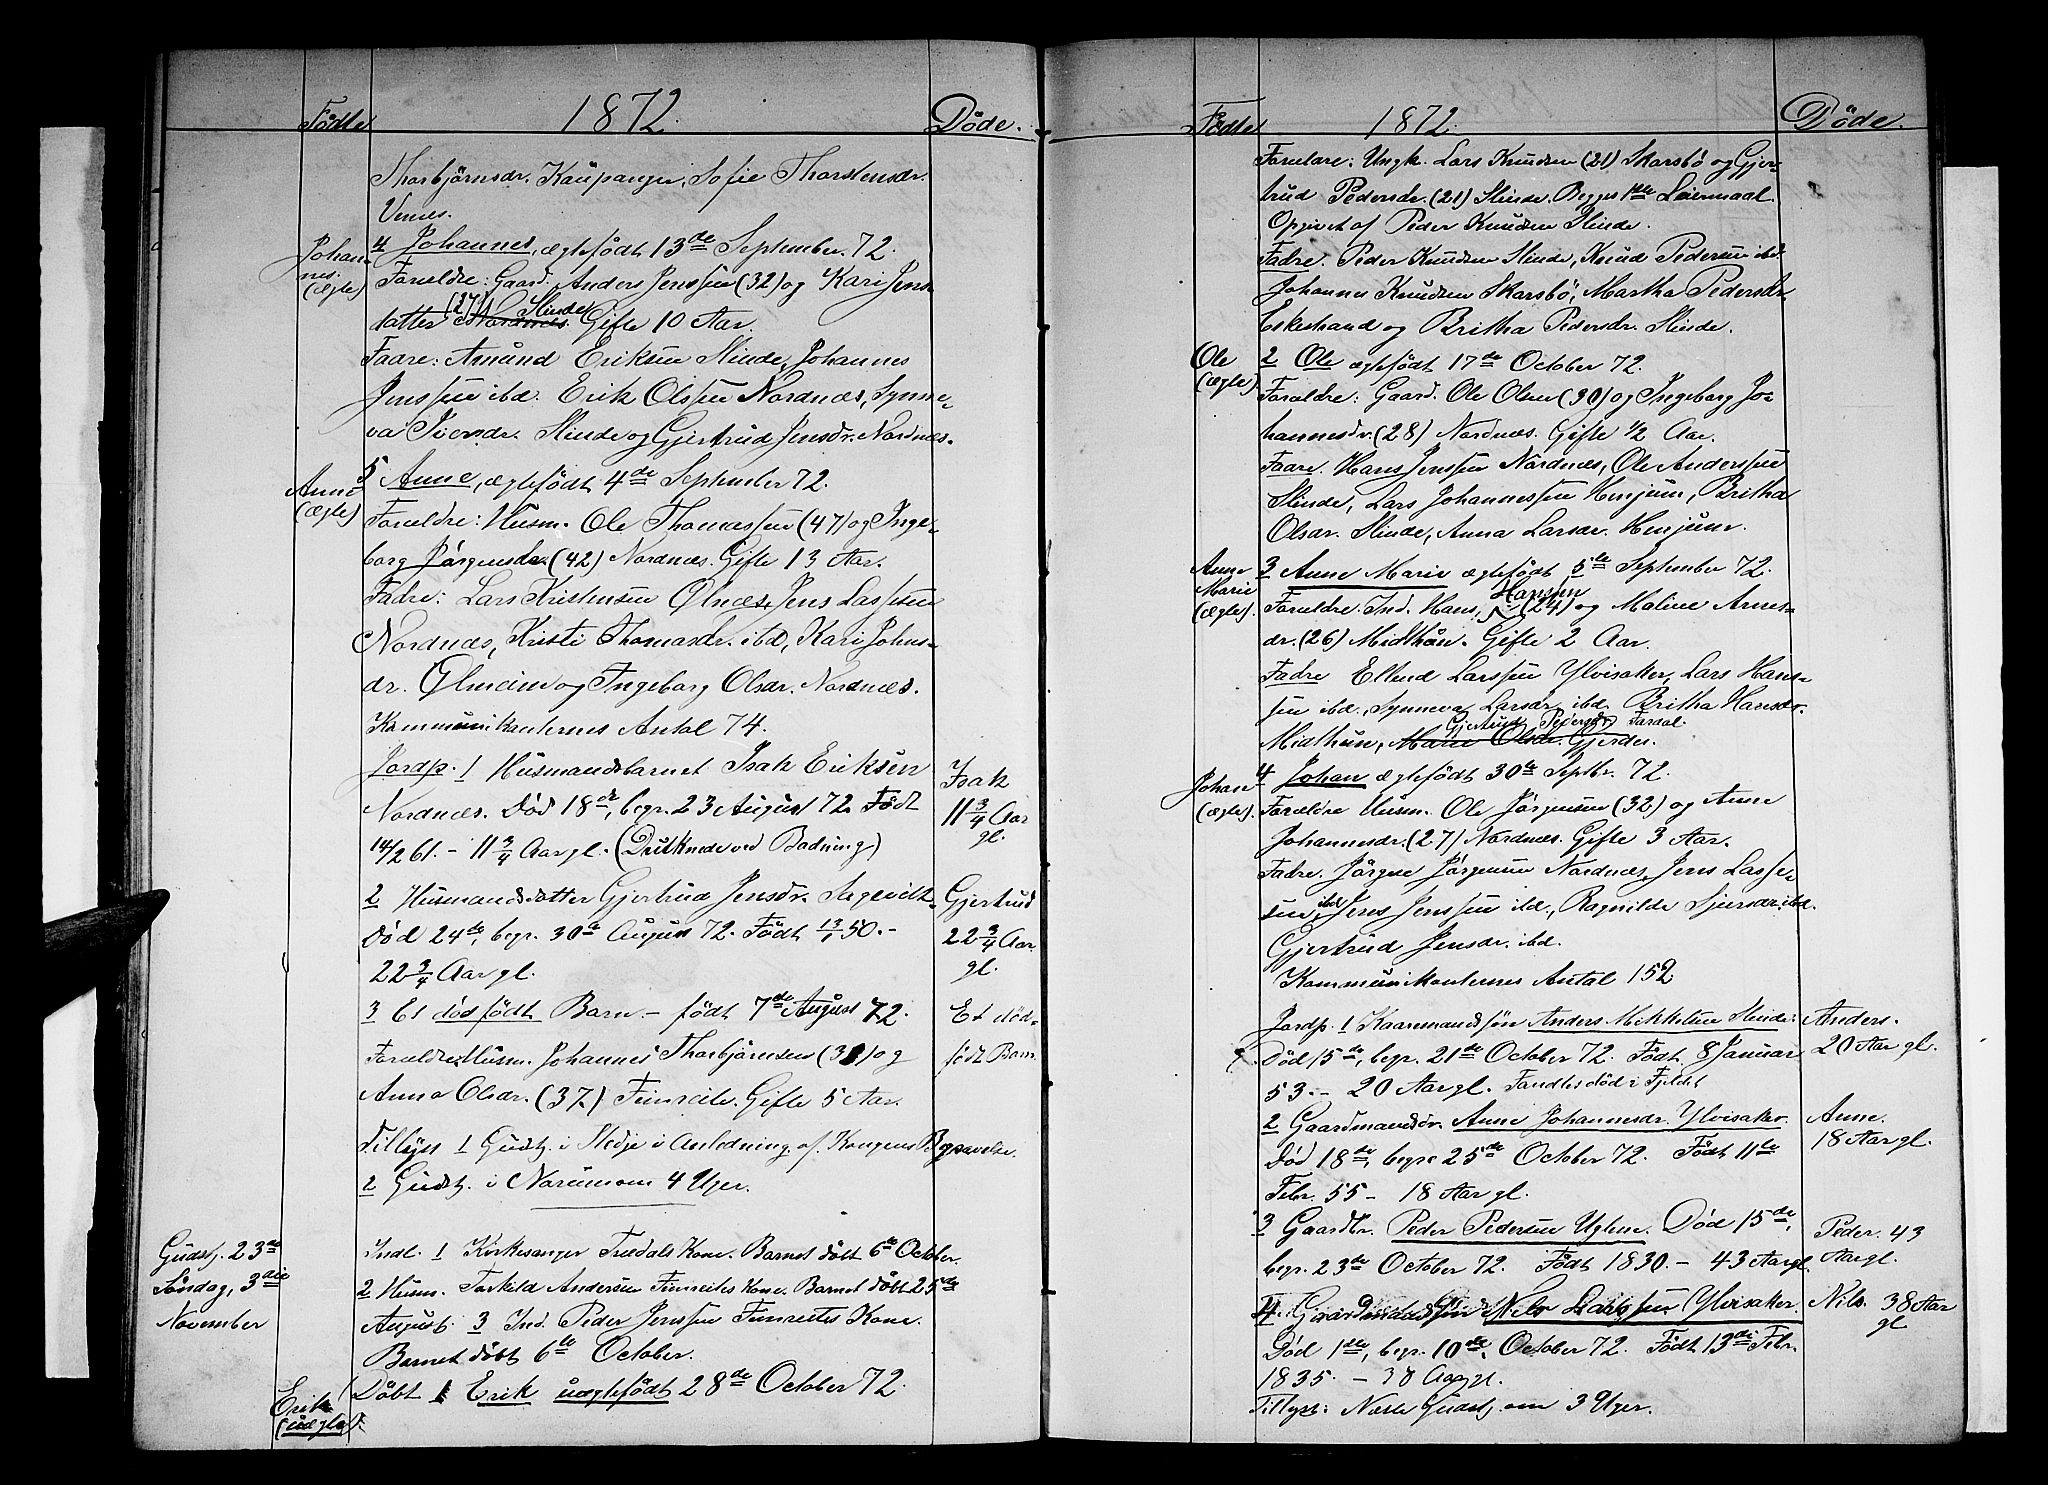 Födte
1872.
Döde.
Thorbjörnsdr. Kaupanger, Sofie Thorstensdr.
Vemes.
Johan-
nes.
(ægte)
4 Johannes, ægtefödt 13de September 72.
Forældre: Gaard. Anders Jenssen (32) og Kari Jens-
datter (27) Slinde Nordnes. Gifte 10 Aar.
Fadre: Amund Eriksen Slinde, Johannes
Jenssen ibd. Erik Olssen Nordnæs, Synne-
va Iversdr. Slinde og Gjertrud Jensdr. Nordnæs.
Anne
(ægte)
5 Anne, ægtefödt 4de September 72.
Forældre: Husm. Ole Thomassen (47) og Inge-
borg Jörgensdr. (42) Nordnæs. Gifte 13 Aar.
Fadre: Lars Kristensen Ølnæs, Jens Lassesen
Nordnæs, Kristi Thomasdr. ibd, Kari Johns-
dr. Ølmeim og Ingeborg Olsdr. Nordnæs.
Kommunikanternes Antal 74.
Jordp. 1 Husmandsbarnet Isak Eriksen
Nordnæs. Död 18de, begr. 23 August 72. Födt
14/2 61. - 11 3/4 Aar gl. (Druknede ved Badning)
Isak
11 3/4 Aar
gl.
2 Husmandsdatter Gjertrud Jensdr. Sagevidt-
Död 24de, begr. 30te August 72. Födt 13/1 50. -
22 3/4 Aar gl.
Gjertrud
22 3/4 Aar
gl.
3 Et dödfödt Barn. - födt 7de August 72.
Forældre: Husm. Johannes Thorbjörnsen (31) og
Anna Olsdr. (37) Fimreite. Gifte 5 Aar.
Et död-
födt Barn.
Tillyst 1 Gudstj. i Stedje i Anledning af Kongens Begravelse.
2 Gudstj. i Norum om 4 Uger.
Gudstj. 23de
Söndag, 3die
November
Indl. 1 Kirkesanger Kone. Barnet döbt 6te October.
2 Husm. Torkild Andersen Fimreites Kone. Barnet döbt 25de
August. 3 Ind. Peder Jenssen Fimreites Kone.
Barnet döbt 6te October.
Erik
(uægte)
Döbt 1 Erik uægtefödt 28de October 72.
Födte
1872.
Döde.
Forældre: Ungk. Lars Knudsen (21) Skarsbö og Gjer-
trud Pedersdr. (21) Slinde. Begges 1ste Leiermaal.
Opgivet af Peder Knudsen Slinde.
Fadre: Peder Knudsen Slinde, Knud Pedersen ibd.
Johannes Knudsen Skarsbö, Martha Pedersdr.
Eskestrand og Britha Pedersdr. Slinde.
Ole
(ægte).
2 Ole ægtefödt 17de October 72.
Forældre: Gaard. Ole Olsen (30) og Ingeborg Jo-
hannesdr. (28) Nordnæs. Gifte 1/2 Aar.
Fadre. Hans Jenssen Nordnæs, Ole Anderssen
Slinde, Lars Johannessen Henjum, Britha
Olsdr. Slinde, Anna Larsdr. Henjum.
Anne
Marie
(ægte).
3 Anne Marie ægtefödt 5te September 72.
Forældre. Ind. Hans Hansen (24) og Maline Arnes-
dr. (26) Midthun. Gifte 2 Aar.
Fadre Ellend Larssen Ylvisaker, Lars Hans-
sen ibd., Synneva Larsdr. ibd, Britha Hansdr.
Midthun, Marie Olsdr. Gjerde. Gjertrud Pedersdr Fardal.
Johan
(ægte).
4 Johan ægtefödt 30te Septbr. 72.
Forældre Husm. Ole Jörgensen (32) og Anne
Johannesdr. (27) Nordnæs. Gifte 3 Aar.
Fadre. Jörgen Jörgensen Nordnæs, Jens Lasse-
sen ibd Jens Jenssen ibd., Ragnilde Sjursdr. ibd.
Gjertrud Jensdr. ibd.
Kommunikanternes Antal 152
Jordp. 1 Kaarmandssön Anders Mikkelsen Slinde.
Död 15de, begr. 21de October 72. Födt 8 Januar
53. - 20 Aar gl. Fandtes död i Fjeldet
Anders.
20 Aar gl.
2 Gaardmandsdr. Anne Johannesdr. Ylvisaker.
Död 18de, begr. 25de October 72. Födt 11te
Febr. 55 - 18 Aar gl.
Anne.
18 Aar gl.
3 Gaardbr. Peder Pedersen Uglum. Död 15de,
begr. 23de October 72. Födt 1830. - 43 Aar gl.
Peder. 43
Aar gl.
4 Gaardmandssön Nils Larssen Ylvisaker.
Död 1ste, begr. 10de October 72. Födt 13de Febr.
1835. - 38 Aar gl.
Nils. 38 Aar
gl
Tillyst: Næste Gudstj. om 3 Uger.